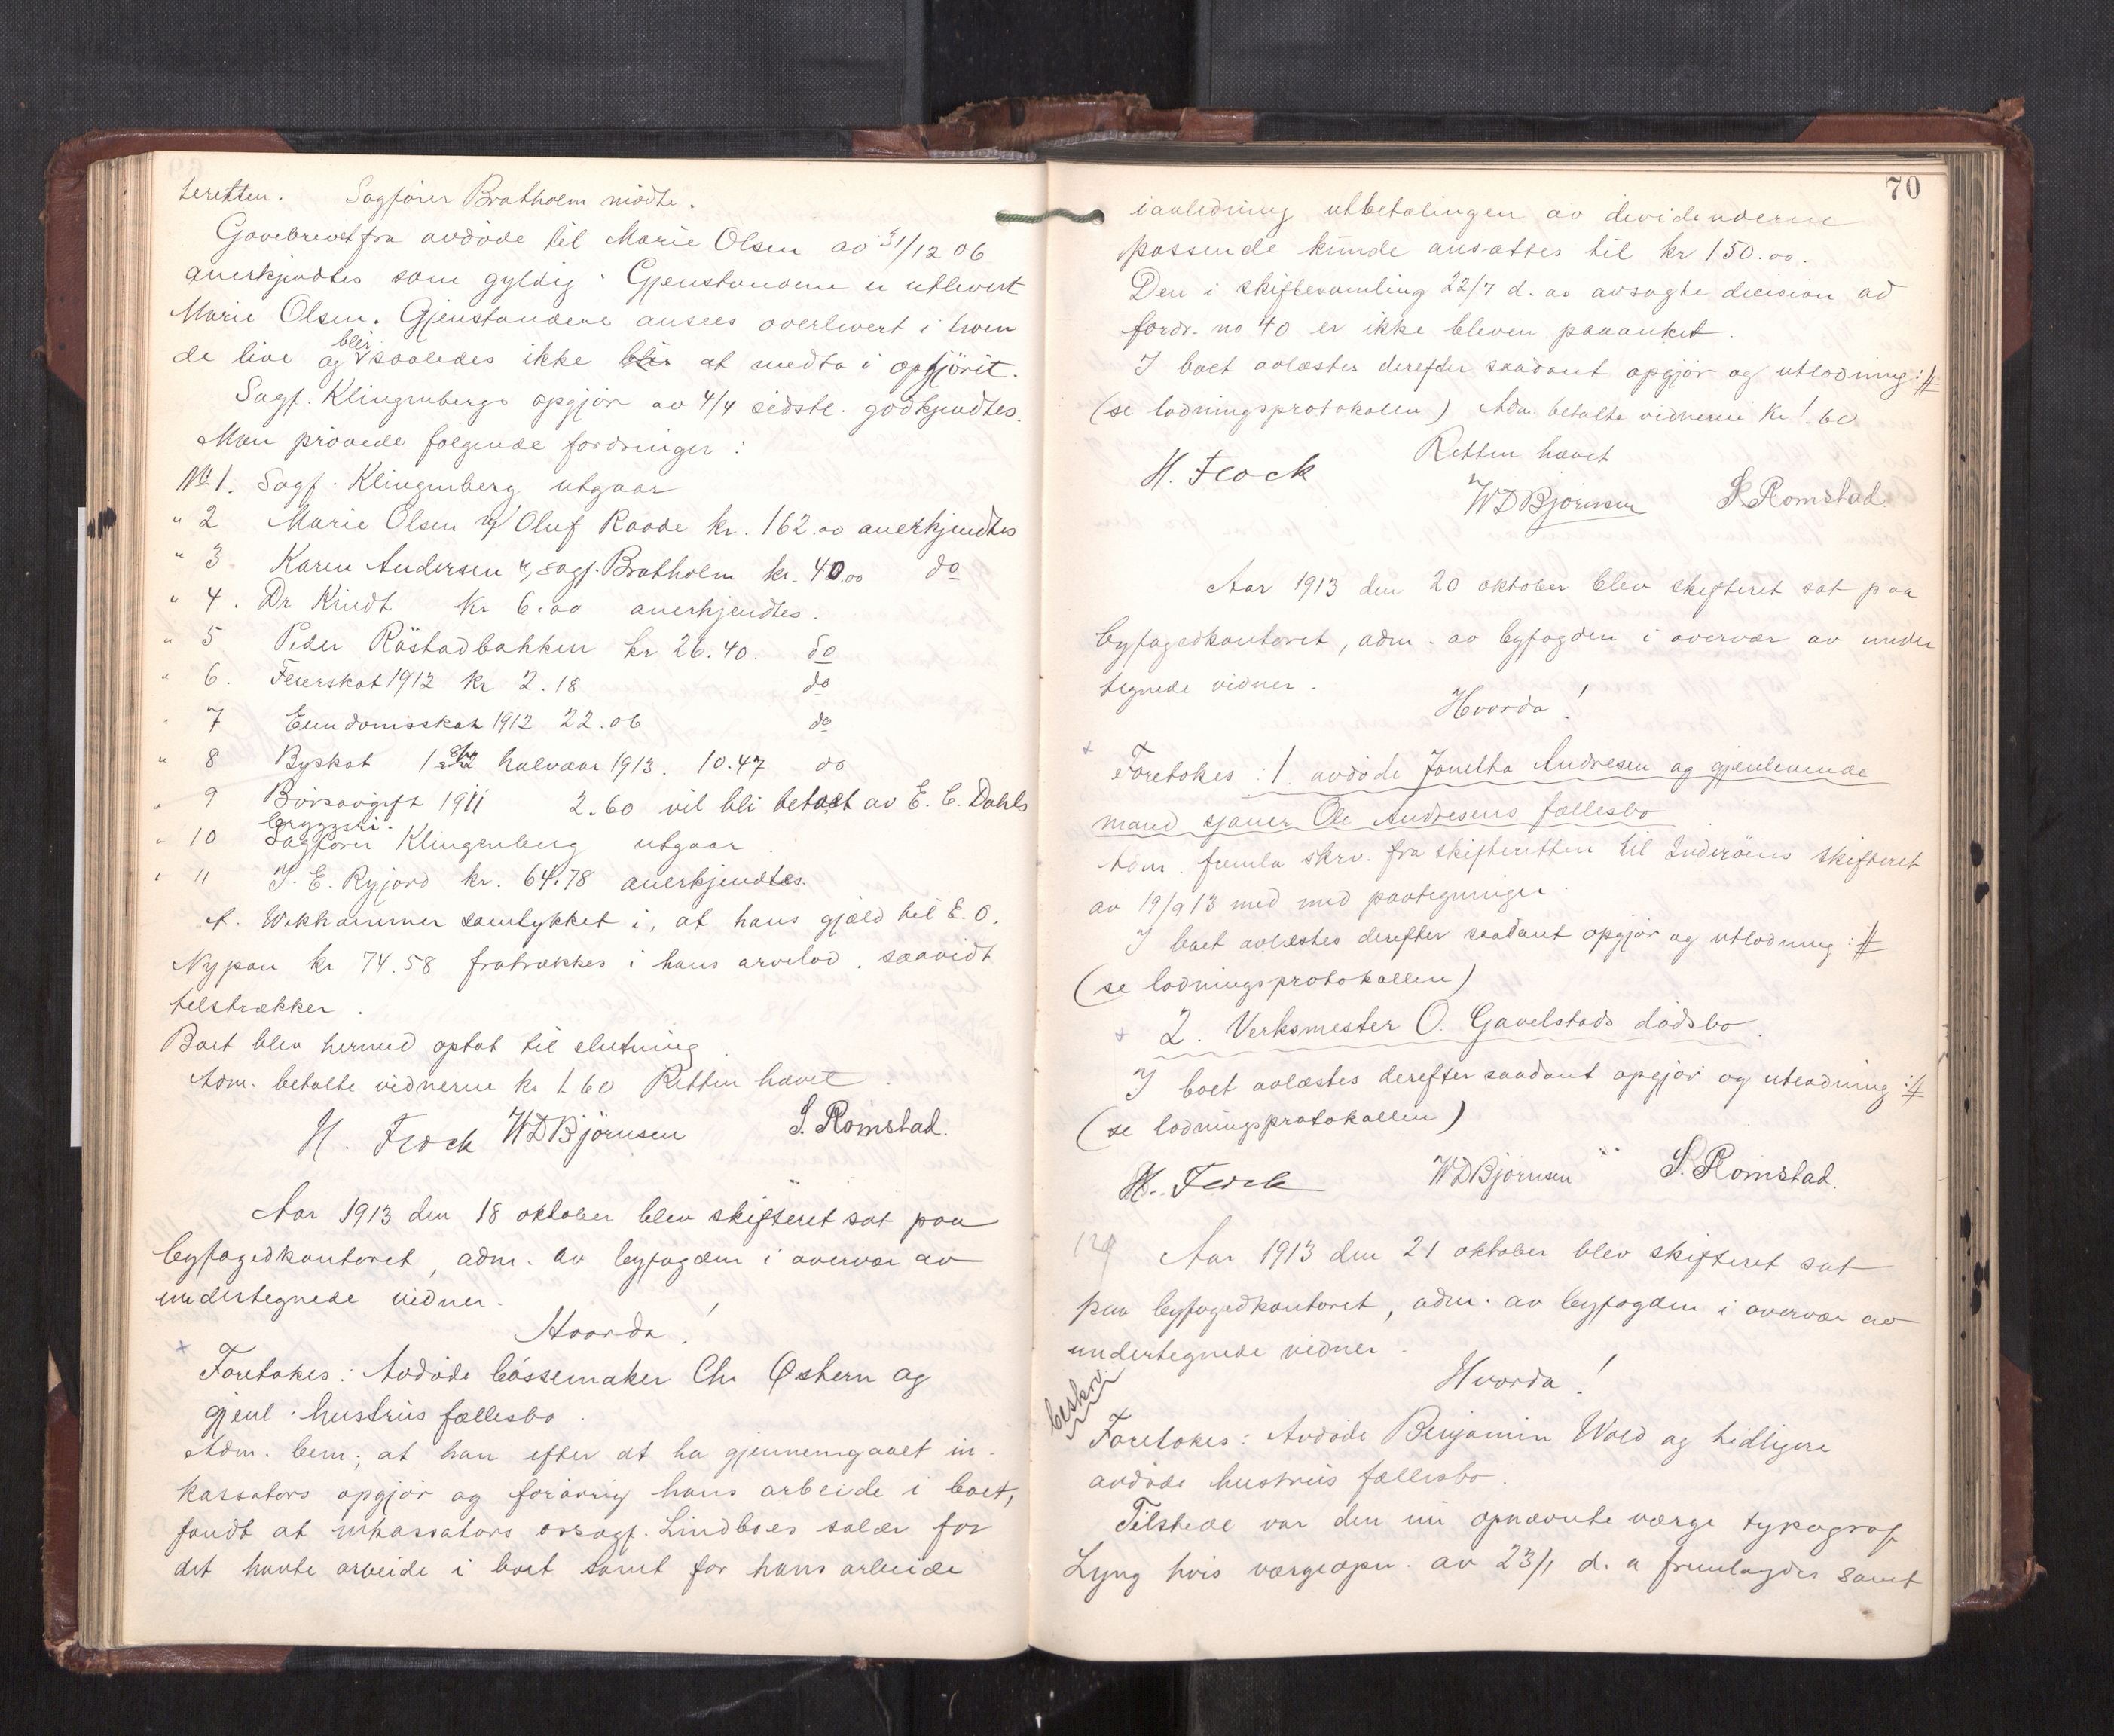 teretten. Sagfører Bratholm mødte.
Gavebrevet fra avdøde til Marie Olsen av 31/12 06
anerkjendtes som gyldig. Gjenstandene er utlevert
Marie Olsen. Gjenstandene ansees overlevert i leven
de live og blir saaledes ikke blir at medta i opgjöret.
Sagf. Klingenbergs opgjör av 4/4 sidstl. godkjendtes.
Man prövede fölgende fordringer:
No 1. Sagf. Klingenberg utgaar
" 2 Marie Olsen v/ Oluf Raade kr. 162.00 anerkjendtes
" 3 Karen Andersen v/ sagf. Bratholm kr. 40.00 do
" 4. Dr Kindt kr 6.00 anerkjendtes.
" 5 Peder Råstadbakken kr 26.40. do
" 6. Feierskat 1912 kr 2.18 do
" 7 Eiendomsskat 1912 22.06 do
" 8 Byskat 1ste halvaar 1913. 10.47 do
" 9 Börsavgift 1911 2.60 vil bli betalt av E. C. Dahls
bryggeri.
" 10 Sagförer Klingenberg utgaar.
" 11 J. E. Ryjord kr. 64.78 anerkjendtes.
A. Wekhammer samtykket i, at hans gjæld til E. O.
Nypan kr 74.58 fratrækkes i hans arvelod, saavidt
tilstrækker.
Boet blev hermed optat til slutning
Adm. betalte vidnerne kr 1.60 Retten hævet.
H. Flock WDBjörnsen S. Romstad.
Aar 1913 den 18 oktober blev skifteret sat paa
byfogedkontoret, adm. av byfogden i overvær av
undertegnede vidner.
Hvorda!
Foretokes: Avdøde bössemaker Chr Østern og
gjenl. hustrus fællesbo.
Adm. bem. at han efter at ha gjennemgaaet in-
kassators opgjör og forövrig hans arbeide i boet,
fandt at inkassators orsagf. Lindboes salær for
det havte arbeide i boet samt for hans arbeide
70
ianledning utbetalingen av dividenderne
passende kunde ansættes til kr 150.00.
Den i skiftesamling 22/7 d. aa avsagte decision ad
fordr. no 40 er ikke bleven paaanket.
I boet avlæstes derefter saadant opgjör og utlodning: #
(se lodningsprotokollen) Adm. betalte vidnerne kr 1.60
Retten hævet
H. Flock WDBjörnsen S. Romstad.
Aar 1913 den 20 oktober blev skifteret sat paa
byfogedkontoret, adm. av byfogden i overvær av under
tegnede vidner.
Hvorda!
Foretokes: 1. avdöde Jonetta Andresen og gjenlevende
mand sjauer Ole Andresens fællesbo
Adm. fremla skrv. fra skifteretten til Inderöens skifteret
av 19/9 13 med med paategninger.
I boet avlæstes derefter saadant opgjör og utlodning: #
(se lodningsprotokollen)
2. Verksmester O. Gavelstads dödsbo.
I boet avlæstes derefter saadant opgjör og utlodning: #
(se lodningsprotokollen)
H. Flock WDBjörnsen S. Romstad.
Aar 1913 den 21 oktober blev skifteret sat
paa byfogedkontoret, adm. av byfogden i overvær av
undertegnede vidner.
Hvorda!
beskrv.
Foretokes: Avdöde Benjamin Wold og tidligere
avdöde hustrus fællesbo.
Tilstede var den nu opnævnte værge typograf
Lyng hvis værgeopn. av 23/1 d. a fremlagdes samt